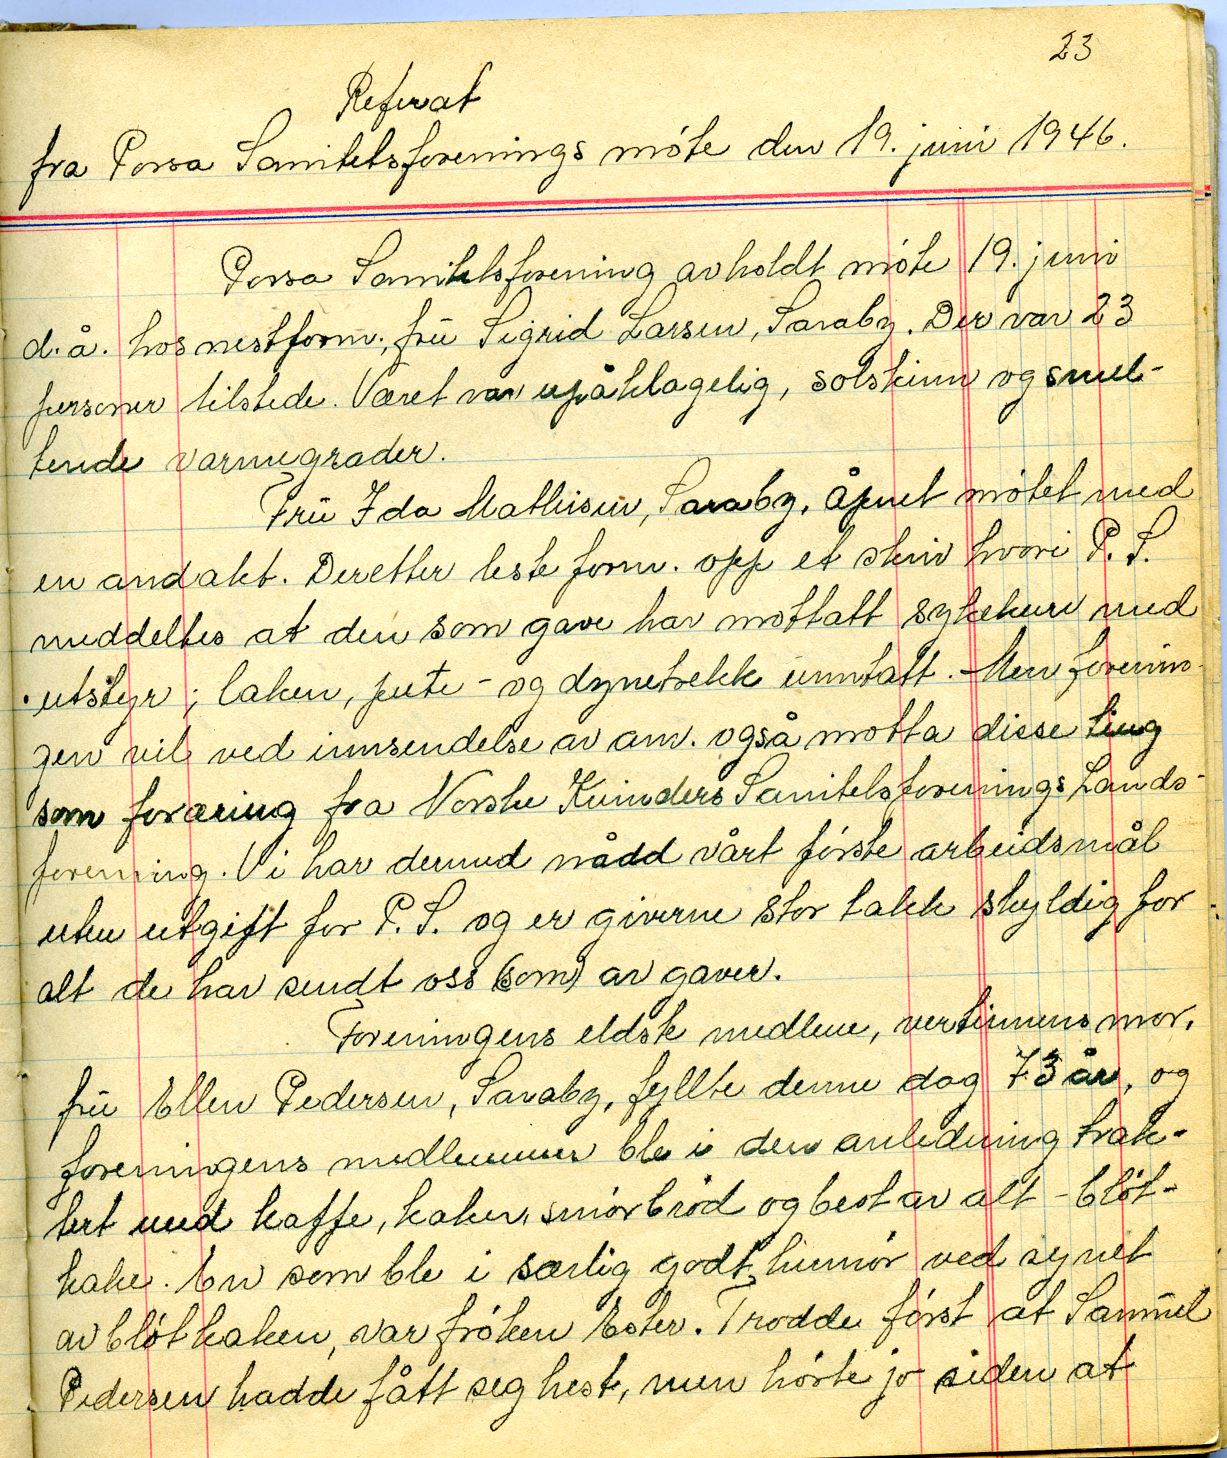 23
Referat
fra Porsa Sanitetsforenings möte den 19. juni 1946.
Porsa Sanitetsforening avholdt möte 19. juni
d.å. hos nestform., frü Sigrid Larsen, Saraby. Der var 23
personer tilstede. Været var upåklagelig, solskinn og smel-
tende varmegrader.
Frü Ida Mathisen, Saraby, åpnet mötet med
en andakt. Deretter leste form. opp et skriv hvori P. S.
meddeltes at den som gave har mottatt sykekurv med
utstyr; laken, pute- og dynetrekk unntatt. Men forenin-
gen vil ved innsendelse av anv. også motta disse ting
som foræring fra Norske Kvinders Sanitetsforenings Lands-
forening. Vi har dermed nådd vårt förste arbeidsmål
uten utgift for P. S. og er giverne stor takk skyldig for
alt de har sendt oss (som) av gaver.
Foreningens eldste medlem, vertinnens mor,
frü Ellen Pedersen, Saraby, fyllte denne dag 73 år, og
foreningens medlemmer ble i den anledning trak-
tert med kaffe, kaker, smörbröd og best av alt - blöt-
kake. En som ble i særlig godt humör ved synet
av blötkaken, var fröken Ester. Trodde först at Samüel
Pedersen hadde fått seg hest, men hörte jo siden at